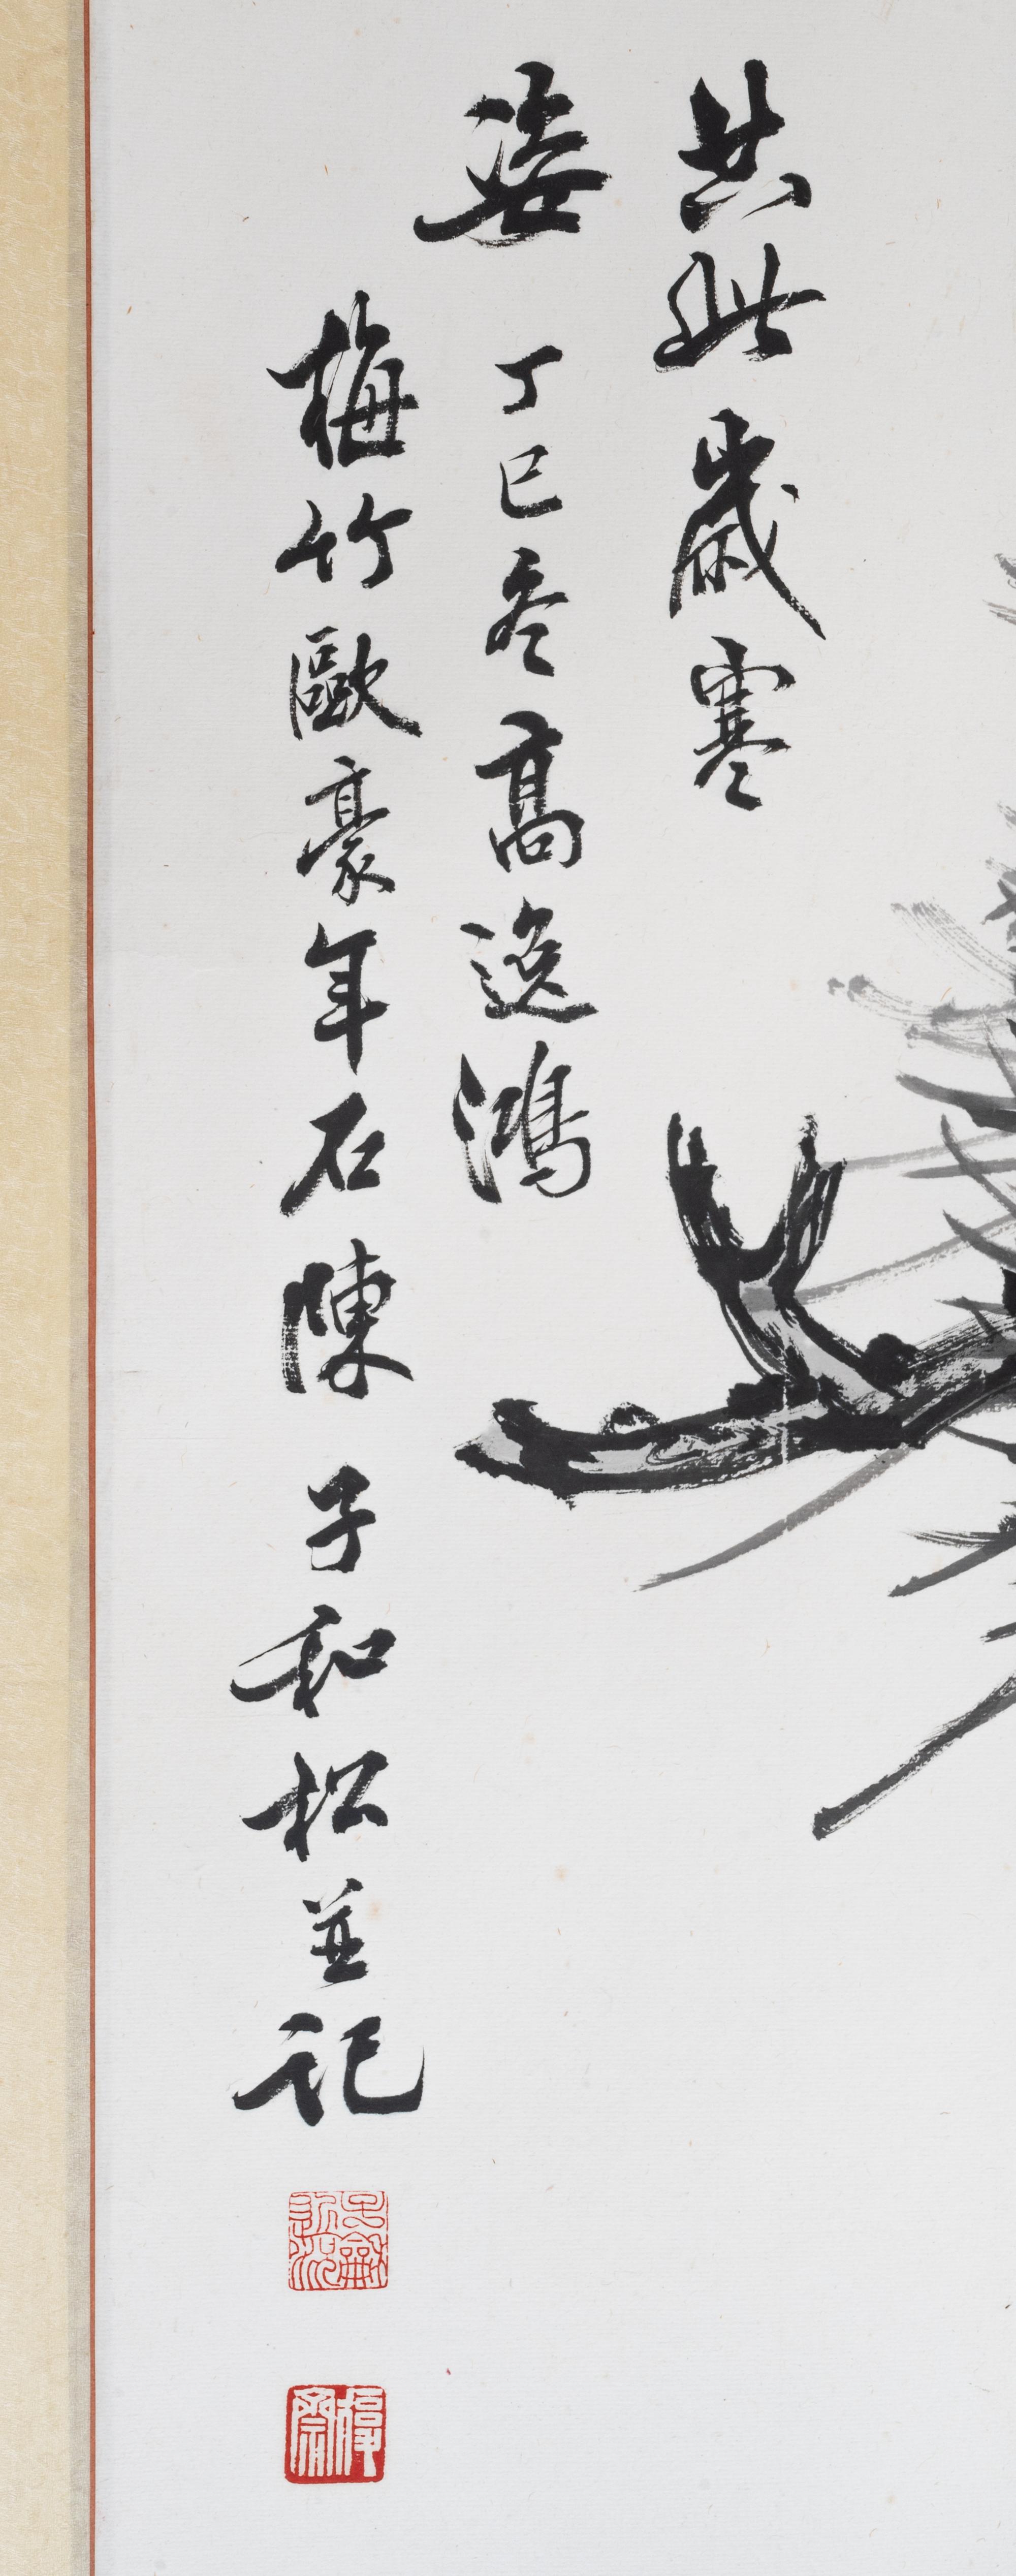 共此歲寒
姿 丁巳冬高逸鴻
梅竹歐豪年石陳子和松並記